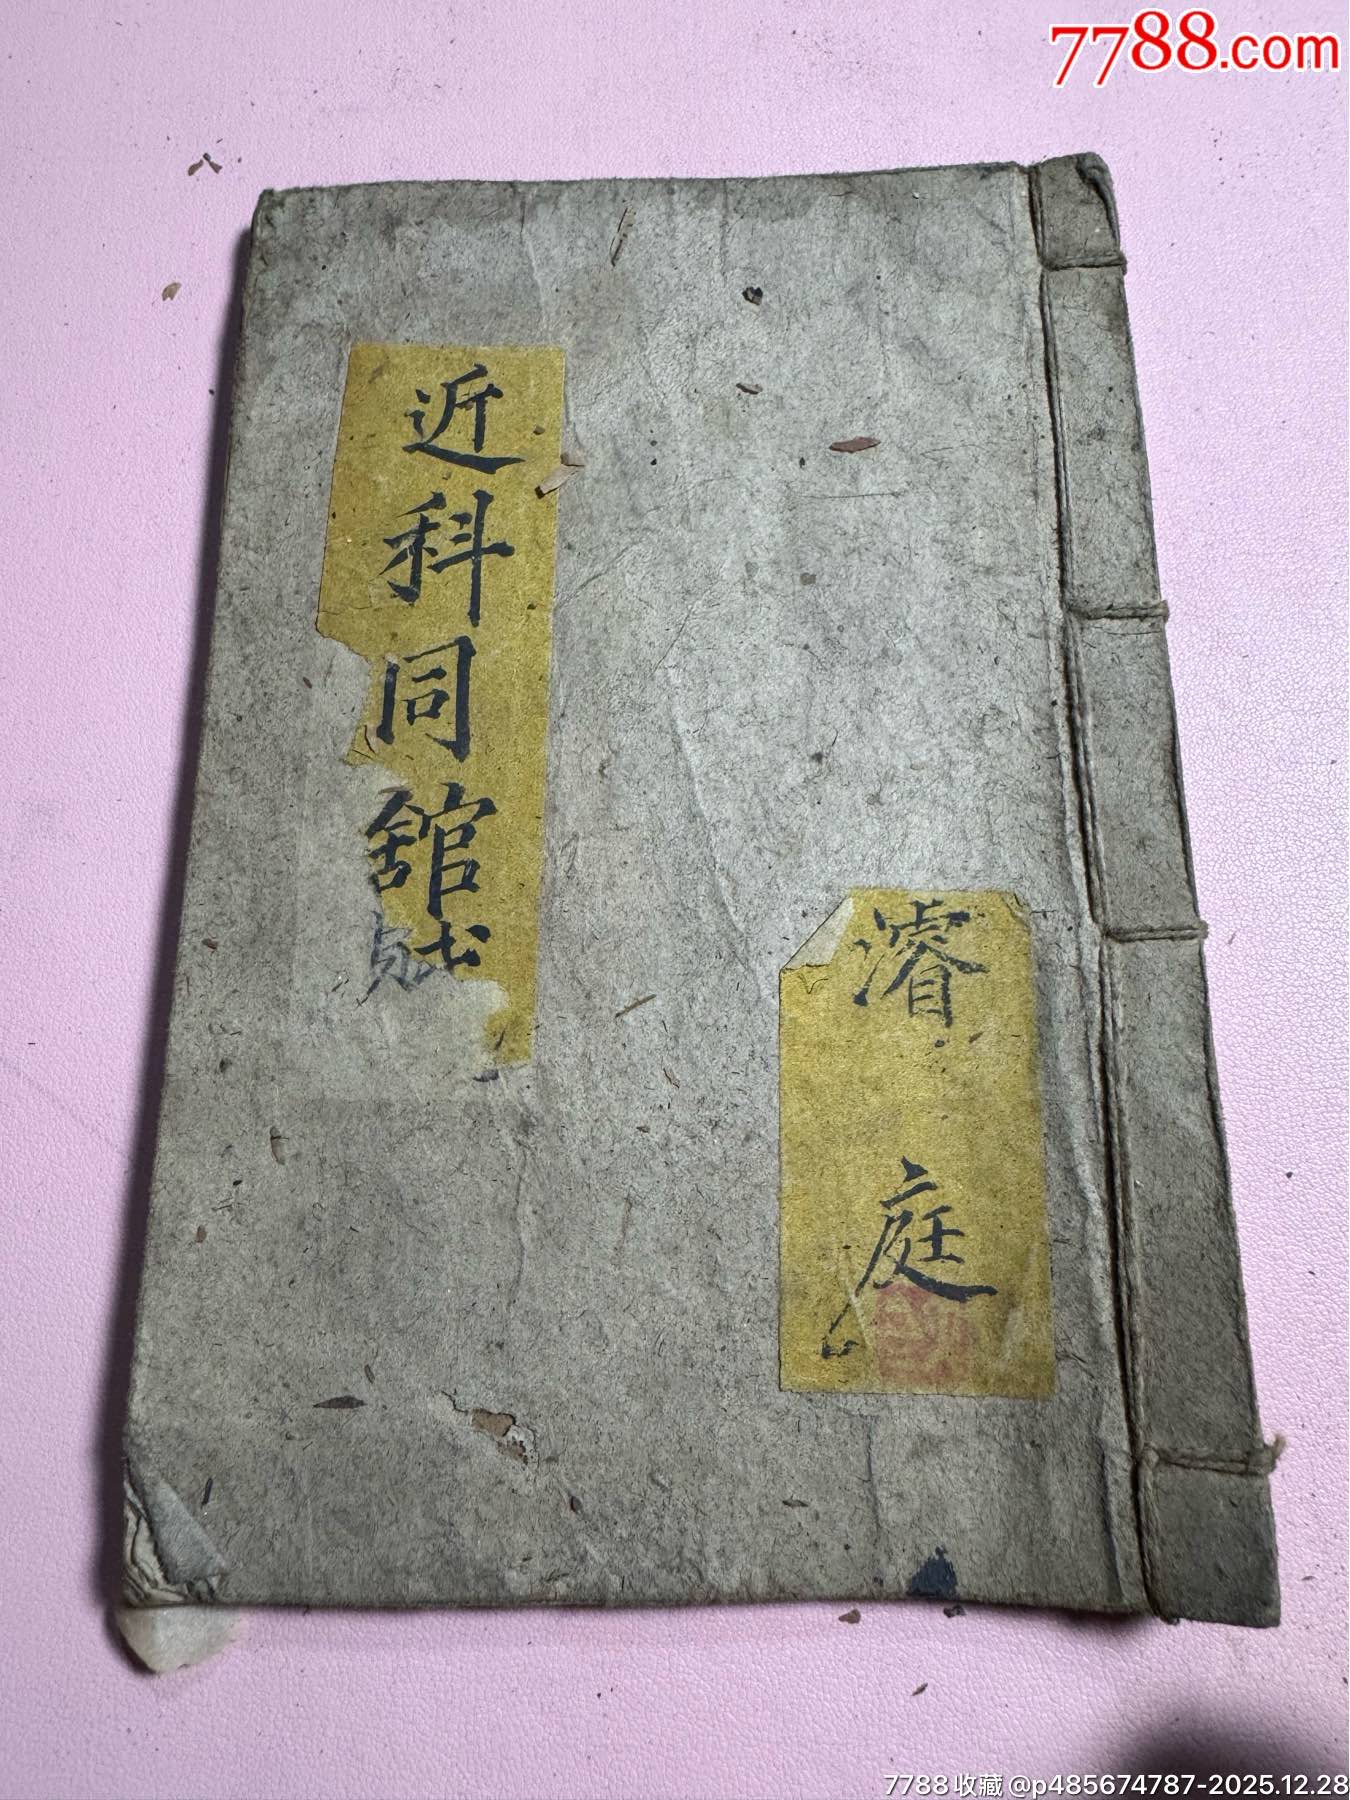 7788.com
近科同館賦
濬庭
7788收藏@p485674787-2025.12.28